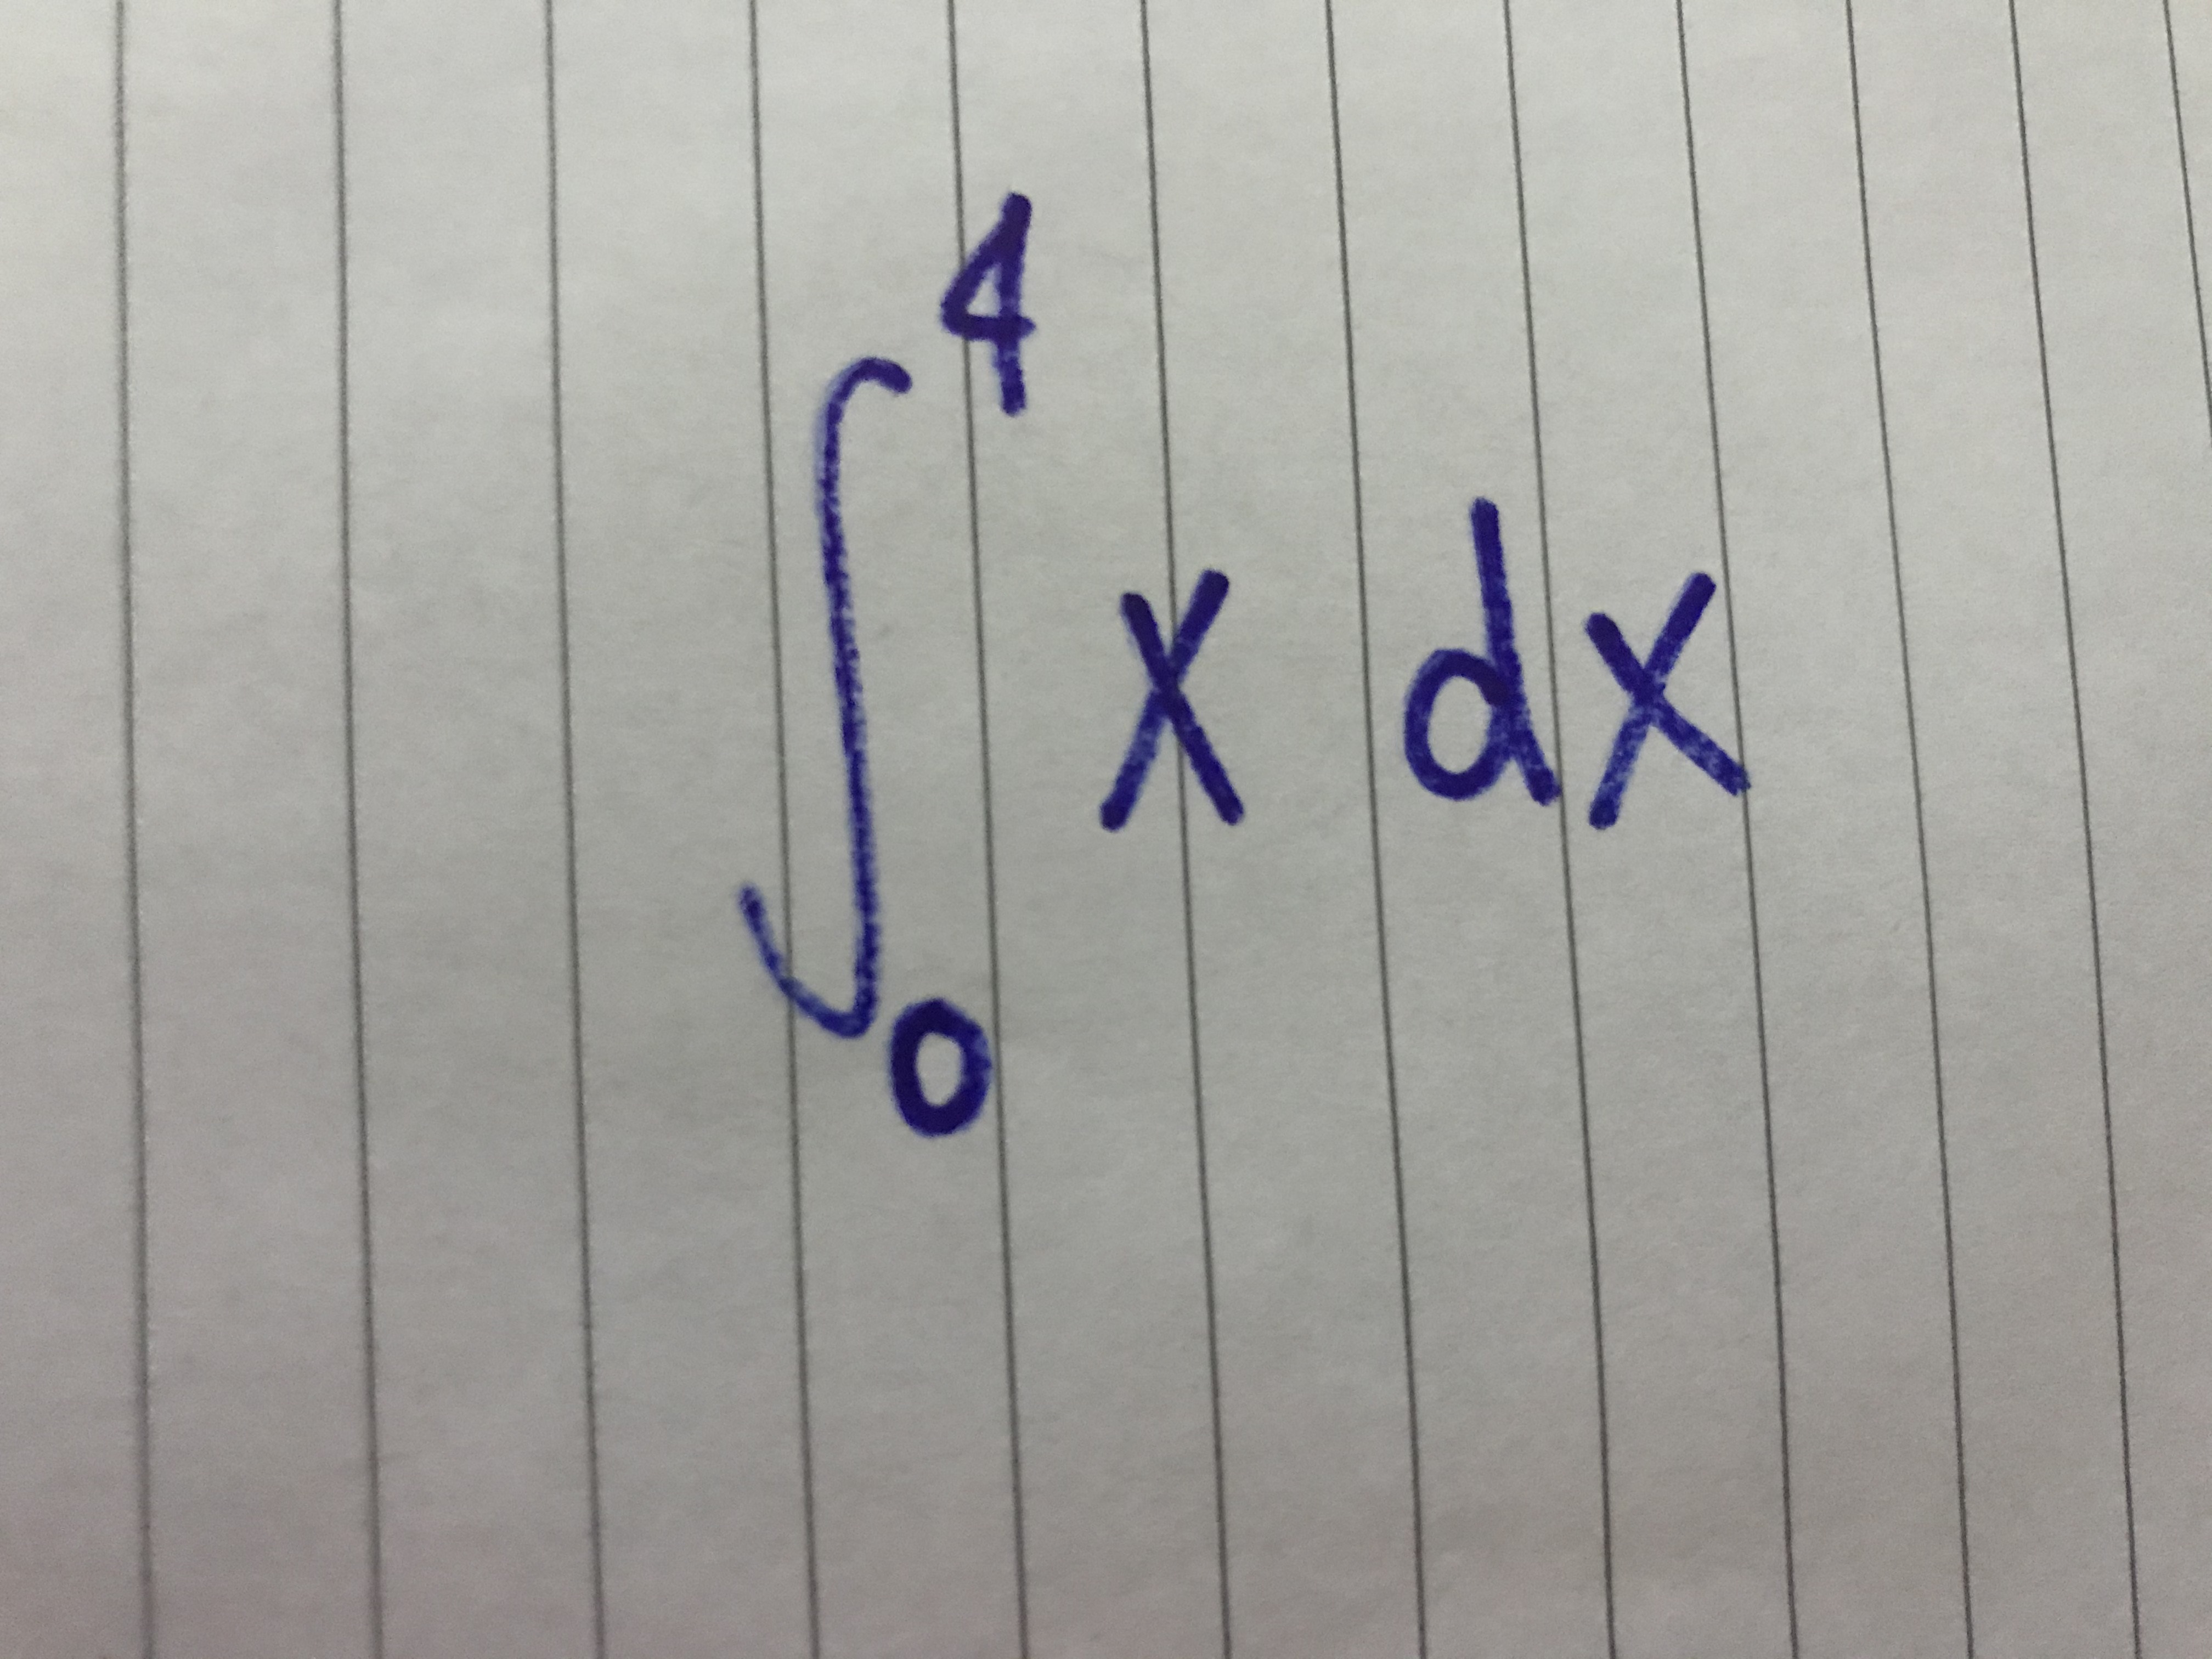 ∫₀⁴ x dx